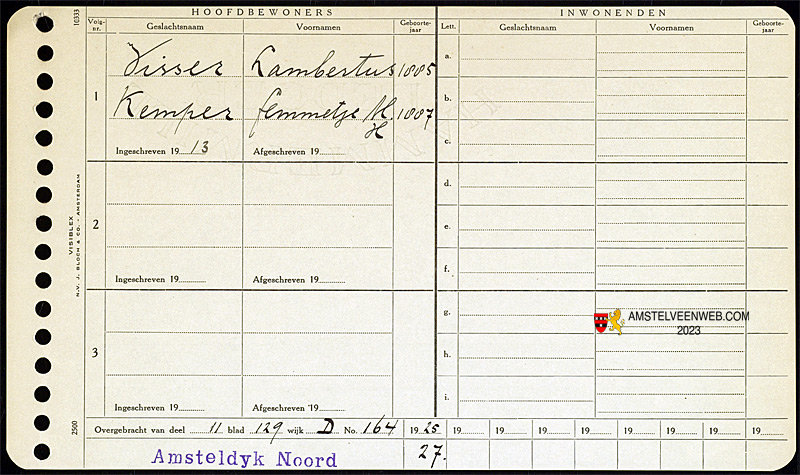 10333
HOOFDBEWONERS
INWONENDEN
Volg-nr. Geslachtsnaam Voornamen Geboorte-jaar
Lett. Geslachtsnaam Voornamen Geboorte-jaar
1
Visser Lambertus 1885
Kemper Femmetje M. 1887
H
Ingeschreven 19 13 Afgeschreven 19
2
Ingeschreven 19 Afgeschreven 19
3
Ingeschreven 19 Afgeschreven 19
a.
b.
c.
d.
e.
f.
g.
h.
i.
AMSTELVEENWEB.COM
2023
VISIBLEX
N.V. J. BLOCH & CO. - AMSTERDAM
2500
Overgebracht van deel 11 blad 129 wijk D No. 164 19 25 19 19 19 19 19 19 19 19
Amsteldyk Noord 27.